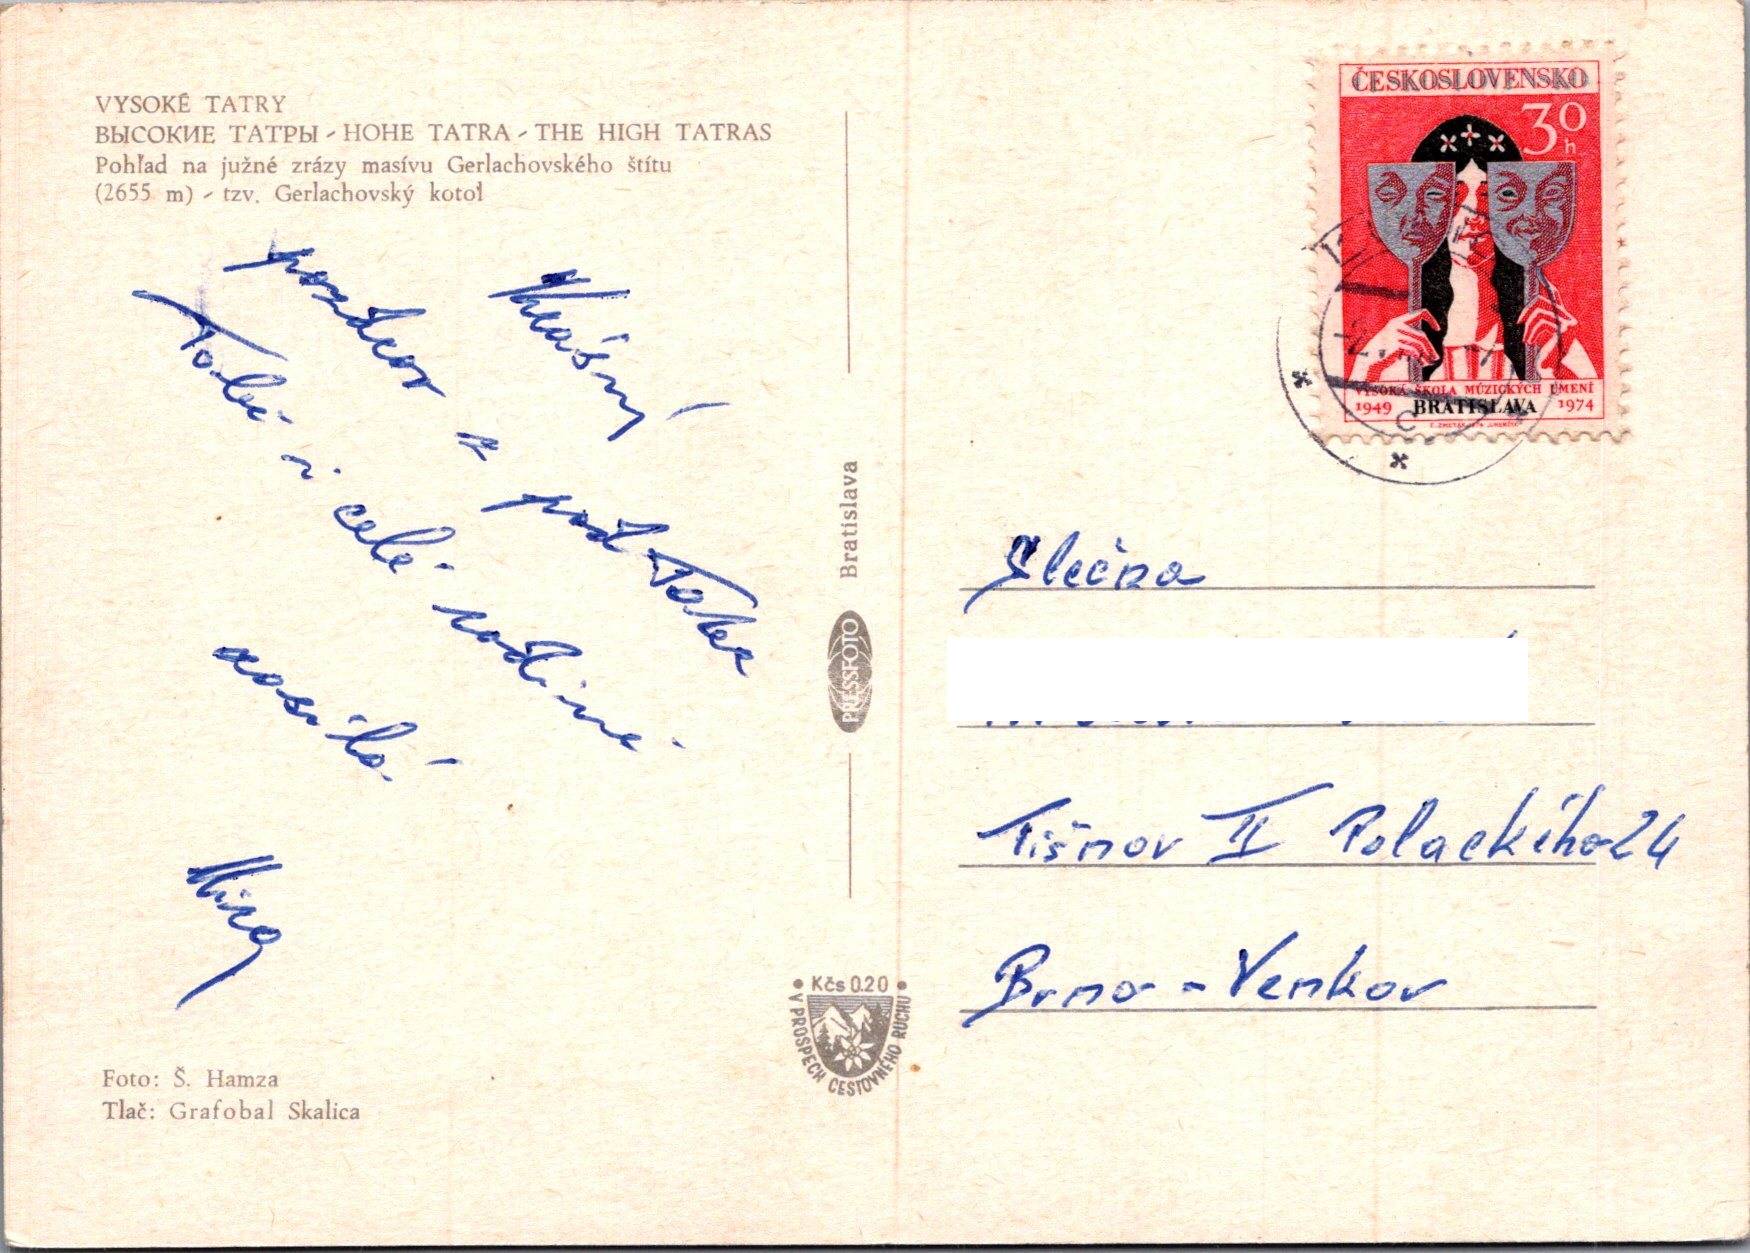 VYSOKÉ TATRY
ВЫСОКИЕ ТАТРЫ - HOHE TATRA - THE HIGH TATRAS
Pohľad na južné zrázy masívu Gerlachovského štítu
(2655 m) - tzv. Gerlachovský kotol
Krásný
pozdrav z pod Tater
Tobě i celé rodině
posílá
Mirg
Foto: Š. Hamza
Tlač: Grafobal Skalica
Bratislava
PRESSFOTO
Kčs 0.20
V PROSPECH CESTOVNÉHO RUCHU
ČESKOSLOVENSKO
30 h
VYSOKÁ ŠKOLA MÚZICKÝCH UMENÍ
1949 BRATISLAVA 1974
Slečna
Tišnov II Polackého 24
Brno - Venkov